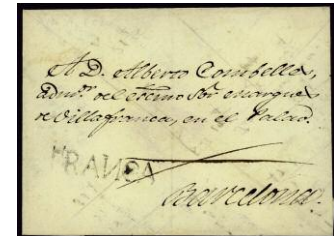 A D. Alberto Combelles,
admor. del Excmo Sor. Marques
de Villafranca, en el Palao.
FRANCA
Barcelona.